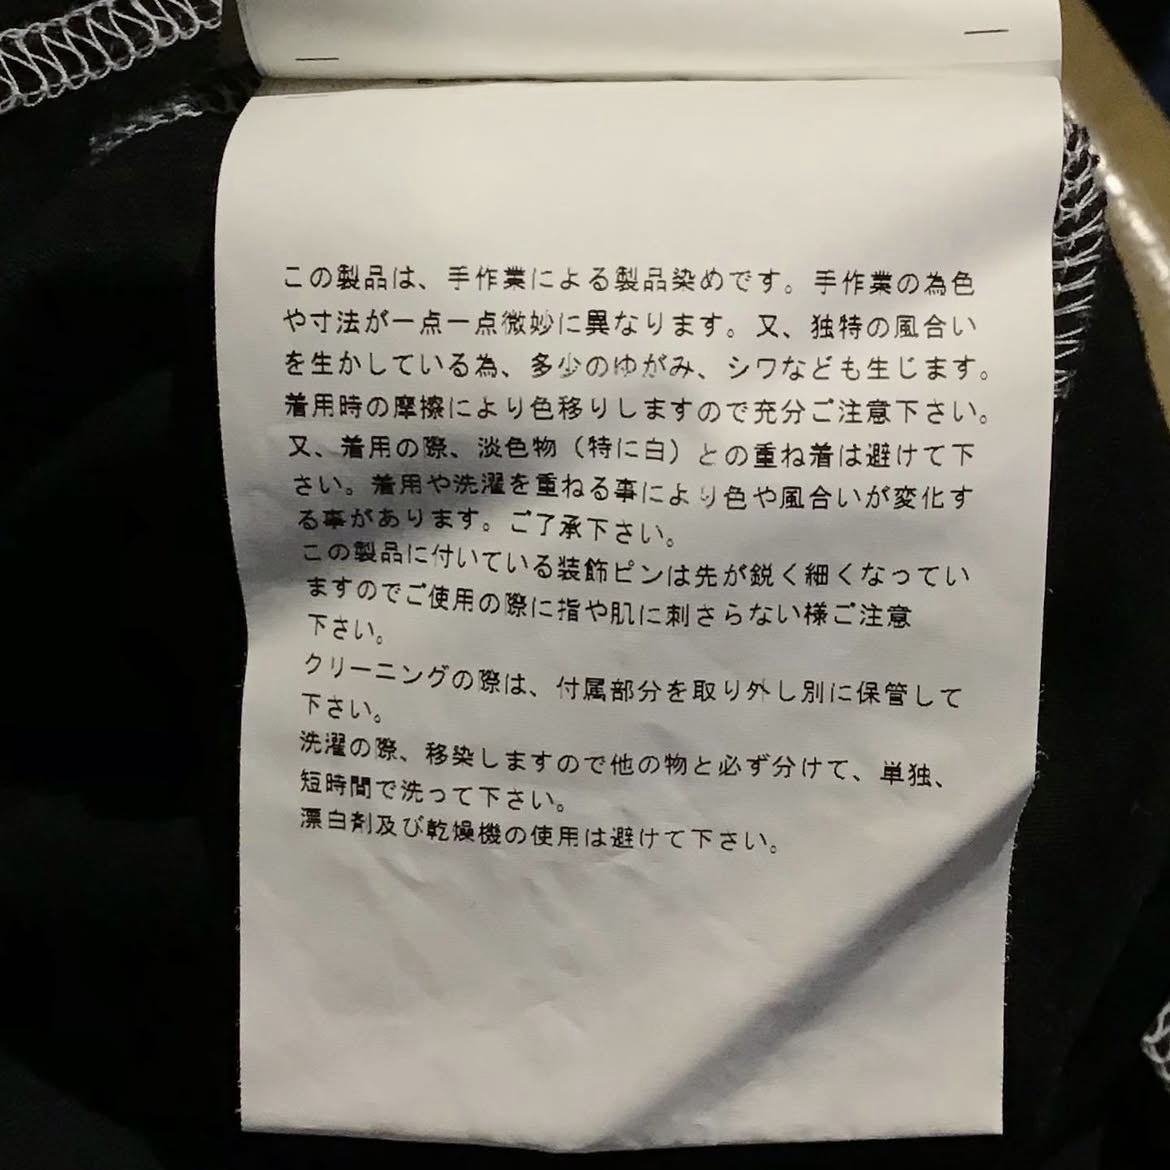 この製品は、手作業による製品染めです。手作業の為色
や寸法が一点一点微妙に異なります。又、独特の風合い
を生かしている為、多少のゆがみ、シワなども生じます。
着用時の摩擦により色移りしますので充分ご注意下さい。
又、着用の際、淡色物（特に白）との重ね着は避けて下
さい。着用や洗濯を重ねる事により色や風合いが変化す
る事があります。ご了承下さい。
この製品に付いている装飾ピンは先が鋭く細くなってい
ますのでご使用の際に指や肌に刺さらない様ご注意
下さい。
クリーニングの際は、付属部分を取り外し別に保管して
下さい。
洗濯の際、移染しますので他の物と必ず分けて、単独、
短時間で洗って下さい。
漂白剤及び乾燥機の使用は避けて下さい。